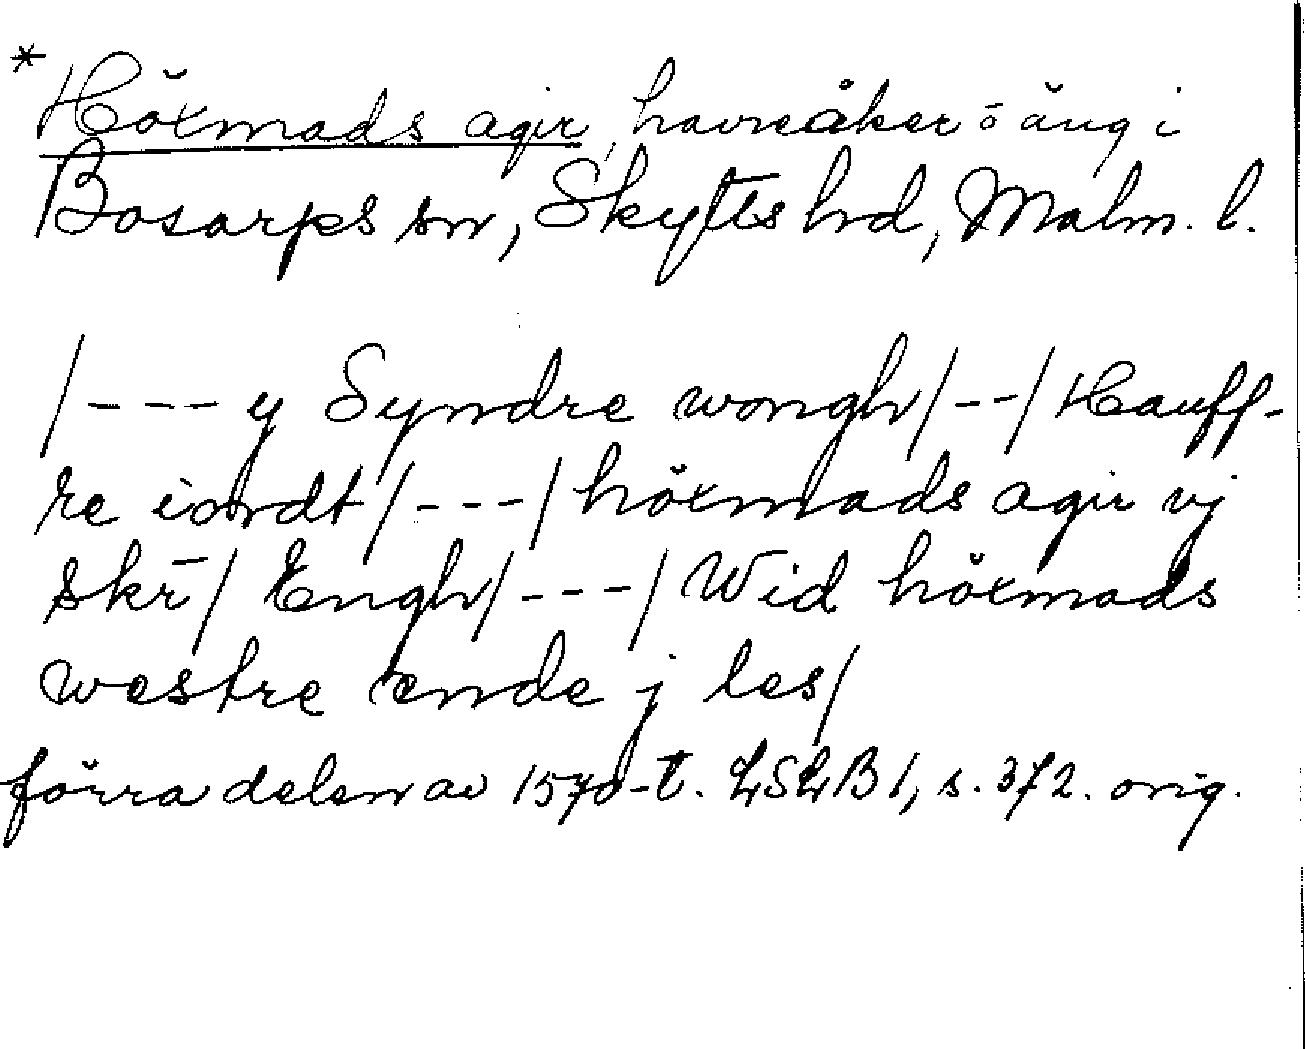 * Höxmads agir, havreåker o äng i
Bosarps sn, Skytts hd, Malm. l.
/---y Syndre wongh/--/Hauff-
re iordt/---/höxmads agir vj
skr̄/ Engh/---/Wid höxmads
westre ende j les/
förra delen av 1570-t. LSLB1, s. 372. orig.